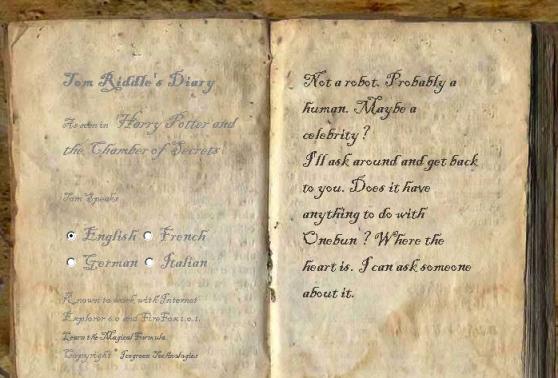 Tom Riddle's Diary
As seen in Harry Potter and
the Chamber of Secrets
Tom Speaks
English French
German Italian
Known to work with Internet
Explorer 6.0 and FireFox 1.0.1.
Learn the Magical Formula.
Copyright © Icegreen Technologies
Not a robot. Probably a
human. Maybe a
celebrity ?
I'll ask around and get back
to you. Does it have
anything to do with
Onebun ? Where the
heart is. I can ask someone
about it.